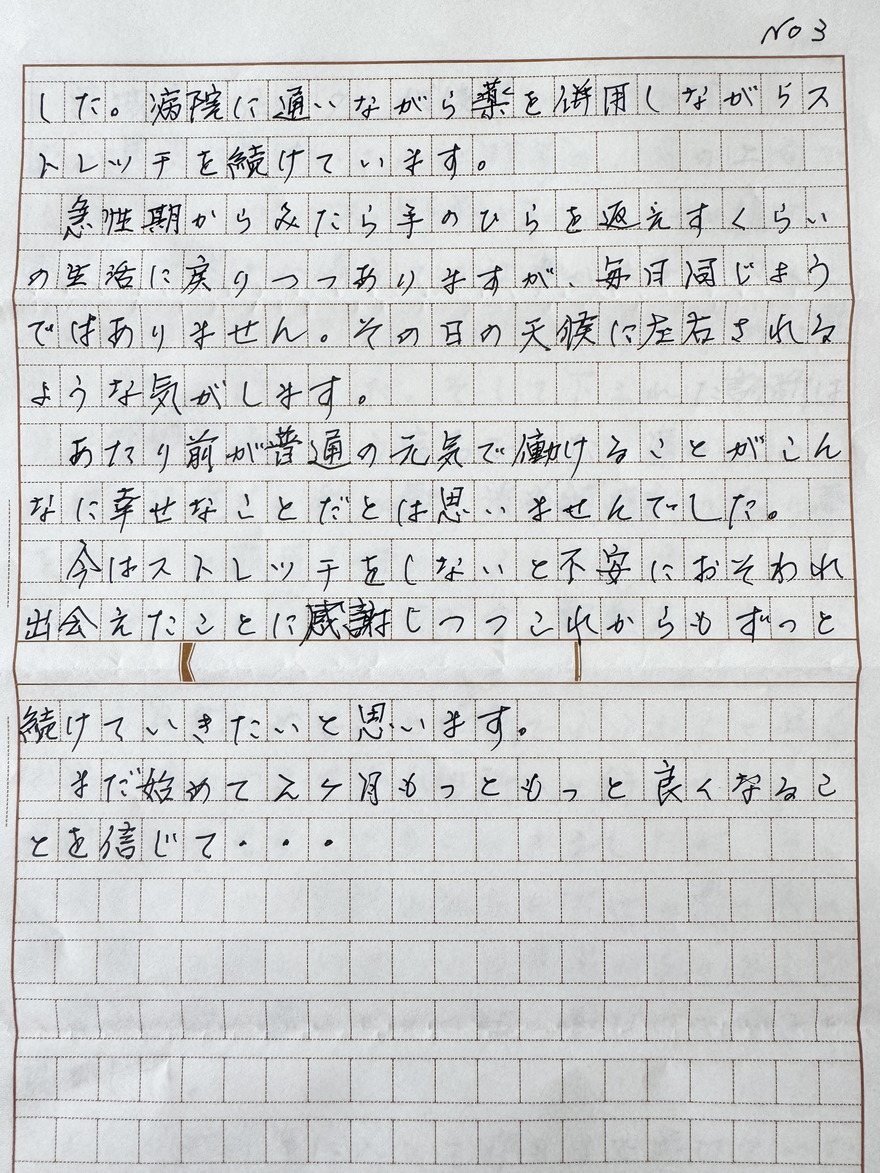 No 3
した。病院に通いながら薬を併用しながらス
トレッチを続けています。
急性期からみたら手のひらを返えすくらい
の生活に戻りつつありますが、毎日同じよう
ではありません。その日の天候に左右される
ような気がします。
あたり前が普通の元気で働けることがこん
なに幸せなことだとは思いませんでした。
今はストレッチをしないと不安におそわれ
出会えたことに感謝しつつこれからもずっと
続けていきたいと思います。
まだ始めて2ヶ月もっともっと良くなるこ
とを信じて・・・